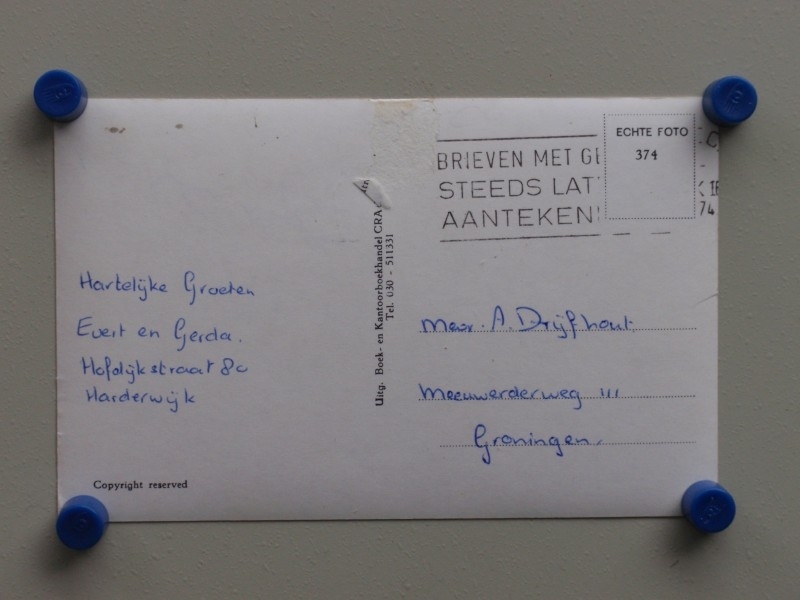 Hartelijke Groeten
Evert en Gerda.
Hofdijkstraat 8c
Harderwijk
Copyright reserved
Uitg. Boek- en Kantoorboekhandel CRA
Tel. 030 - 511331
BRIEVEN MET
STEEDS
AANTEKEN
ECHTE FOTO
374
74
A. Drijfhout
Meeuwerderweg 111
Groningen.